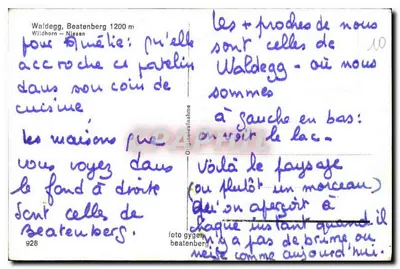 Waldegg, Beatenberg 1200 m
Wildhorn - Niesen
pour Amélie: qu'elle
accroche ce patelin
dans son coin de
cuisine.
Les maisons que
vous voyez dans
le fond à droite
sont celles de
Beatenberg.
928
foto gyger
beatenberg
Les + proches de nous
sont celles de
Waldegg - où nous
sommes
à gauche en bas:
on voit le lac.
Voilà le paysage
(ou plutôt un morceau)
qu'on aperçoit à
chaque instant quand il
n'y a pas de brume ou
neige comme aujourd'hui.
10